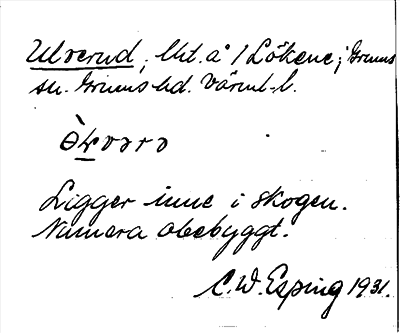 Ulverud, lht. å 1 Lökene, i Grums
sn. Grums hd. Värml. l.
Ligger inne i skogen.
Numera obebyggt.
C. W. Esping 1931.